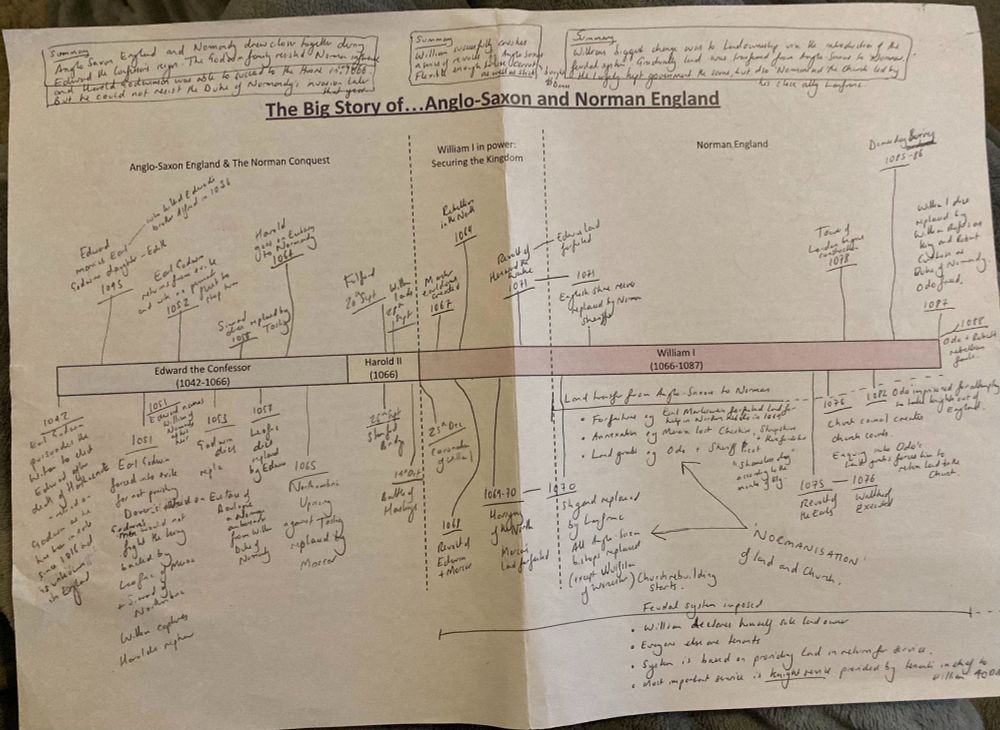 Summary
Anglo Saxon England and Normandy drew close together during
Edward the Confessor's reign. The Godwin family resisted Norman influence
and Harold Godwinson was able to succeed to the throne in 1066.
But he could not resist the Duke of Normandy's invasion later
that year.
Summary
William successfully crushes
a series of revolts by Anglo Saxons
Flexible enough to use carrot
as well as stick
Summary
Williams biggest change was to land ownership via the introduction of the
feudal system. Gradually land was transferred from Anglo Saxons to Normans.
He largely kept government the same, but also Normanised the Church led by
his close ally Lanfranc.
The Big Story of...Anglo-Saxon and Norman England
Anglo-Saxon England & The Norman Conquest
William I in power:
Securing the Kingdom
Norman England
who killed Edward's
brother Alfred in 1036
Edward
marries Earl
Godwins daughter - Edith
1045
Earl Godwin
returns from exile
and with no permanent
fleet to
stop him
1052
Siward
dies replaced by
Tostig
1055
Harold
goes on Embassy
to Normandy
1064
Fulford
20th Sept
William
lands
28th
Sept
Marcher
earldoms
created
1067
Rebellion
in the North
1069
Revolt of
Hereward the
Wake
1071
Edwins land
forfeited
1071
English shire reeves
replaced by Norman
sheriffs
Tower of
London begins
construction
1078
Domesday Survey
1085-86
William I dies
replaced by
William Rufus as
King and Robert
Curthose as
Duke of Normandy.
Odo freed.
1087
1088
Odo + Robert
rebellion
fails.
Edward the Confessor
(1042-1066)
Harold II
(1066)
William I
(1066-1087)
1042
Earl Godwin
persuades the
Witan to elect
Edward after
death of Harthacnut
Godwin as he
has been in exile
since 1016 and
is unknown
in England
1051
Edward names
William of
Normandy
after
1051
Earl Godwin
forced into exile
for not punishing
Dover
Godwins
men would not
fight the king
backed by
Leofric of Mercia
+ Siward of
Northumbria
William captures
Harolds nephew
1053
Godwin
dies
on Eustace of
Boulogne
ambassador
from William
Duke of
Normandy
1057
Leofric
dies
replaced
by
1065
Northumbria
Uprising
against Tostig
replaced by
Morcar
25th Sept
Stamford
Bridge
14th Oct
Battle of
Hastings
25th Dec
Coronation
of William I
1068
Revolt of
Edwin
+ Morcar
1069-70
Harrying
of the North
Morcar's
land forfeited
1070
Stigand replaced
by Lanfranc
All Anglo Saxon
bishops replaced
(except Wulfstan
of Worcester)
Church rebuilding
starts.
Land transfer from Anglo-Saxons to Normans
• Forfeiture eg Earl Markesween forfeited land for
help in Northern Rebellion in 1069
• Annexation eg Mercia lost Cheshire, Shropshire
+ Herefordshire
• Land grabs eg Odo + Sheriff Picot
"Shameless dog"
according to the
monks of Ely.
'NORMANISATION'
of land and Church.
1075
Revolt of
the Earls
1076
Waltheof
Executed
1076
Church council creates
church courts.
Enquiry into Odo's
land grabs forces him to
return land to the
Church
1082 Odo imprisoned for attempting
to take knights out of
England.
Feudal system imposed
• William declares himself sole landowner
• Everyone else are tenants
• System is based on providing land in return for service.
• Most important service is knight service provided by tenants in chief to
William 40 Days